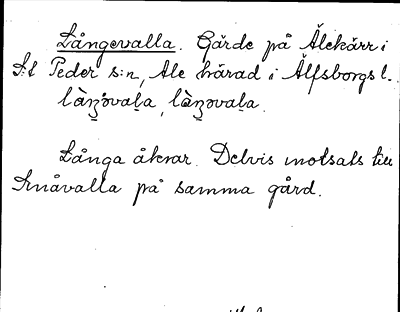 Långevalla. Gärde på Älekärr i
S:t Peder s:n, Ale härad i Älfsborgs l.
Långa åkrar. Delvis motsats till
Småvalla på samma gård.